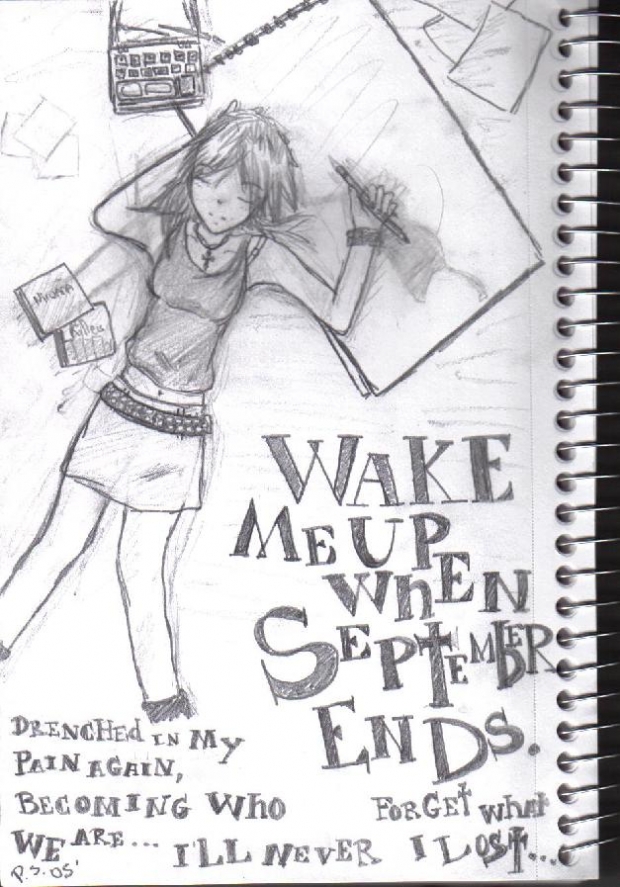 WAKE
ME UP
WhEN
SEPTEMBER
ENDS.
DRENCHEd IN MY
PAIN AGAIN,
BECOMING WHO
WE ARE...
I'LL NEVER
FORGET WhAt
I LOST...
P.S. 05'